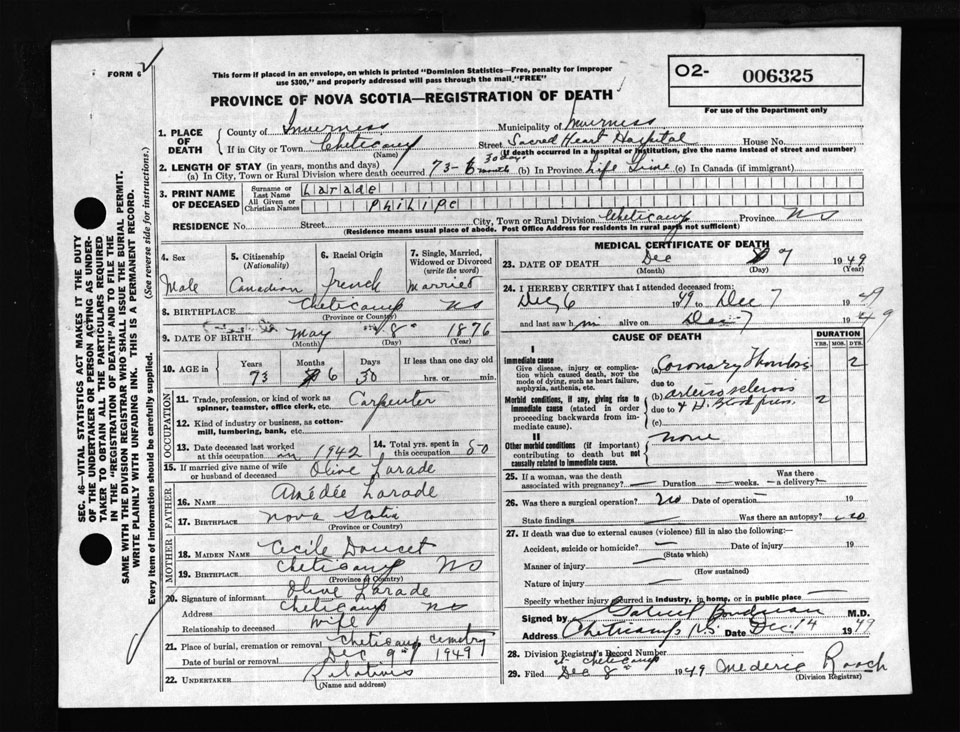 FORM 6
This form if placed in an envelope, on which is printed "Dominion Statistics—Free, penalty for improper
use $300," and properly addressed will pass through the mail "FREE"
PROVINCE OF NOVA SCOTIA—REGISTRATION OF DEATH
O2- 006325
For use of the Department only
SEC. 46—VITAL STATISTICS ACT MAKES IT THE DUTY
OF THE UNDERTAKER OR PERSON ACTING AS UNDER-
TAKER TO OBTAIN ALL THE PARTICULARS REQUIRED
IN THE "REGISTRATION OF DEATH" AND TO FILE THE
SAME WITH THE DIVISION REGISTRAR WHO SHALL ISSUE THE BURIAL PERMIT.
WRITE PLAINLY WITH UNFADING INK. THIS IS A PERMANENT RECORD.
Every item of information should be carefully supplied. (See reverse side for instructions.)
1. PLACE OF DEATH
County of Inverness Municipality of Inverness
If in City or Town Cheticamp Street Sacred Heart Hospital House No.
(Name) (If death occurred in a hospital or institution, give the name instead of street and number)
2. LENGTH OF STAY (in years, months and days)
(a) In City, Town or Rural Division where death occurred 73-6 months 30 days (b) In Province Life Time (c) In Canada (if immigrant)
3. PRINT NAME OF DECEASED
Surname or Last Name Larade
All Given or Christian Names Philipe
RESIDENCE No. Street City, Town or Rural Division Cheticamp Province NS
(Residence means usual place of abode. Post Office Address for residents in rural parts not sufficient)
4. Sex Male
5. Citizenship (Nationality) Canadian
6. Racial Origin French
7. Single, Married, Widowed or Divorced (write the word) Married
8. BIRTHPLACE Cheticamp NS
(Province or Country)
9. DATE OF BIRTH May 8 1876
(Month) (Day) (Year)
10. AGE in Years Months Days If less than one day old
73 6 30 hrs. or min.
OCCUPATION
11. Trade, profession, or kind of work as
spinner, teamster, office clerk, etc. Carpenter
12. Kind of industry or business, as cotton-
mill, lumbering, bank, etc.
13. Date deceased last worked at this occupation in 1942
14. Total yrs. spent in this occupation 50
15. If married give name of wife
or husband of deceased Olive Larade
FATHER
16. NAME Amédée Larade
17. BIRTHPLACE Nova Scotia
(Province or Country)
MOTHER
18. MAIDEN NAME Cecile Doucet
19. BIRTHPLACE Cheticamp NS
(Province or Country)
20. Signature of informant Olive Larade
Address Cheticamp NS
Relationship to deceased Wife
21. Place of burial, cremation or removal Cheticamp Cemetry
Date of burial or removal Dec 9 1949
22. UNDERTAKER Relatives
(Name and address)
MEDICAL CERTIFICATE OF DEATH
23. DATE OF DEATH Dec 7 1949
(Month) (Day) (Year)
24. I HEREBY CERTIFY that I attended deceased from:
Dec 6 49 to Dec 7 1949
and last saw him alive on Dec 7 1949
CAUSE OF DEATH
DURATION
YRS. MOS. DYS.
I
Immediate cause
Give disease, injury or complica-
tion which caused death, NOT the
mode of dying, such as heart failure,
asphyxia, asthenia, etc.
(a) Coronary Thrombosis 2
due to
Morbid conditions, if any, giving rise to
immediate cause (stated in order
proceeding backwards from im-
mediate cause).
(b) arteriosclerosis
due to & H. Blood press. 2
(c)
II
Other morbid conditions (if important)
contributing to death but not
causally related to immediate cause.
none
25. If a woman, was the death
associated with pregnancy? — Duration — weeks. Was there a delivery? —
26. Was there a surgical operation? no Date of operation — 19
State findings — Was there an autopsy? no
27. If death was due to external causes (violence) fill in also the following:—
Accident, suicide or homicide? — Date of injury 19
(State which)
Manner of injury —
(How sustained)
Nature of injury —
Specify whether injury occurred in industry, in home, or in public place —
Signed by Boudreau M.D.
Address Cheticamp N.S. Date Dec. 14 1949
28. Division Registrar's Record Number
at Cheticamp
29. Filed Dec 8 1949 Mederic Roach
(Division Registrar)